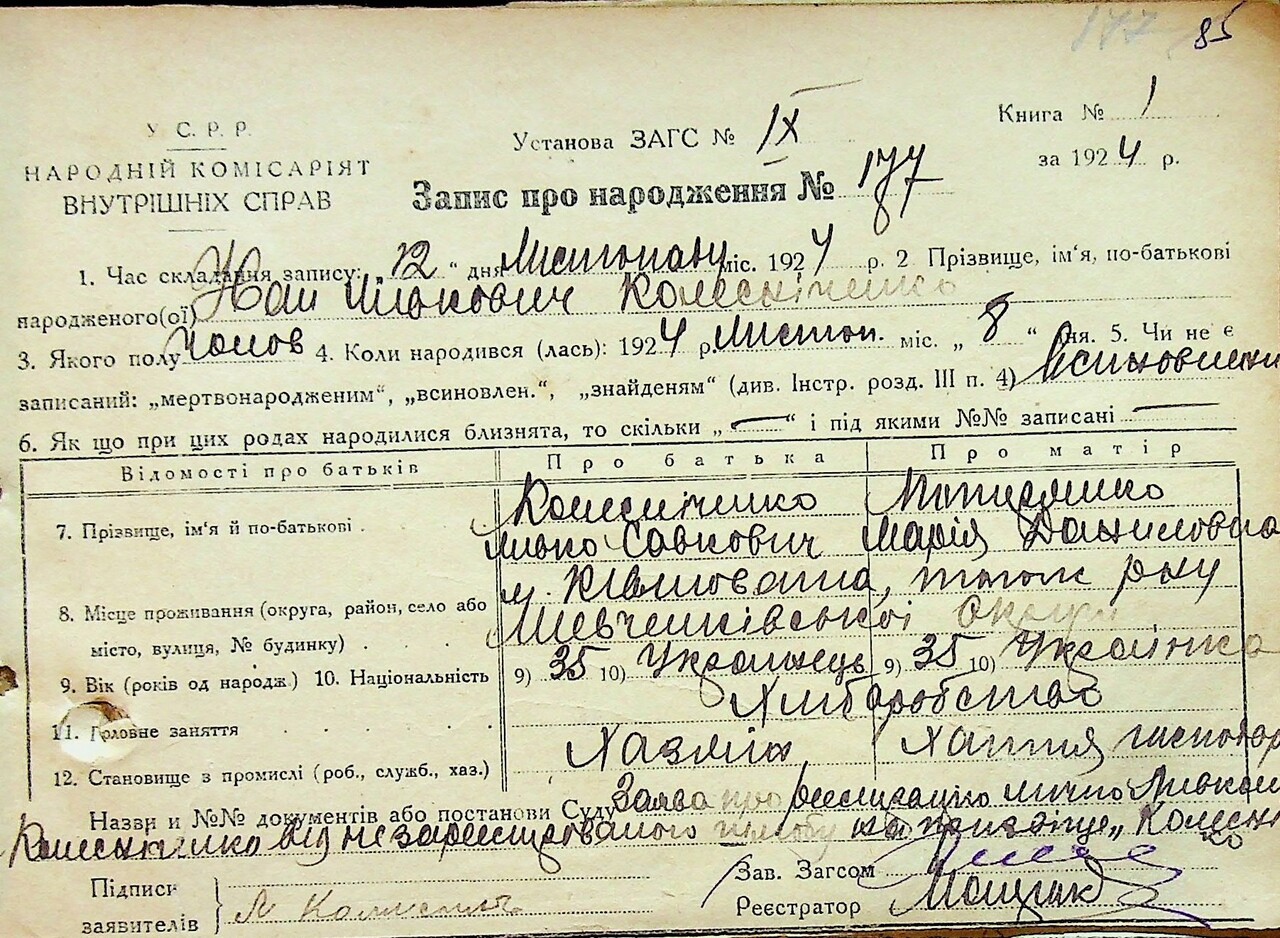 177 85
У. С. Р. Р.
НАРОДНІЙ КОМІСАРІЯТ
ВНУТРІШНІХ СПРАВ
Установа ЗАГС № IX
Книга № 1
за 1924 р.
Запис про народження № 177
1. Час складання запису: 12 " дня Листопаду міс. 1924 р. 2 Прізвище, ім'я, по-батькові
народженого(ої) Левкович Колесніченко
3. Якого полу Чолов 4. Коли народився (лась): 1924 р. Листоп. міс. „ 8 " дня. 5. Чи не є
записаний: „мертвонародженим", „всиновлен.", „знайденям" (див. Інстр. розд. III п. 4)
6. Як що при цих родах народилися близнята, то скільки „ — " і під якими №№ записані —
Відомості про батьків Про батька Про матір
7. Прізвище, ім'я й по-батькові . Колесніченко
Левко Савкович Марія Даниловна
8. Місце проживання (округа, район, село або
місто, вулиця, № будинку) . Шевченківської Округи
9. Вік (років од народж.) 10. Національність 9) 35 10) Українець 9) 35 10) Українка
11. Головне заняття Хліборобство
12. Становище з промислі (роб., служб., хаз.) Хазяїн
Назви и №№ документів або постанови Суду Заява про
Колесніченко від незареєстрованого шлюбу на прізвище „
Підписи
заявителів
Зав. Загсом
Реєстратор